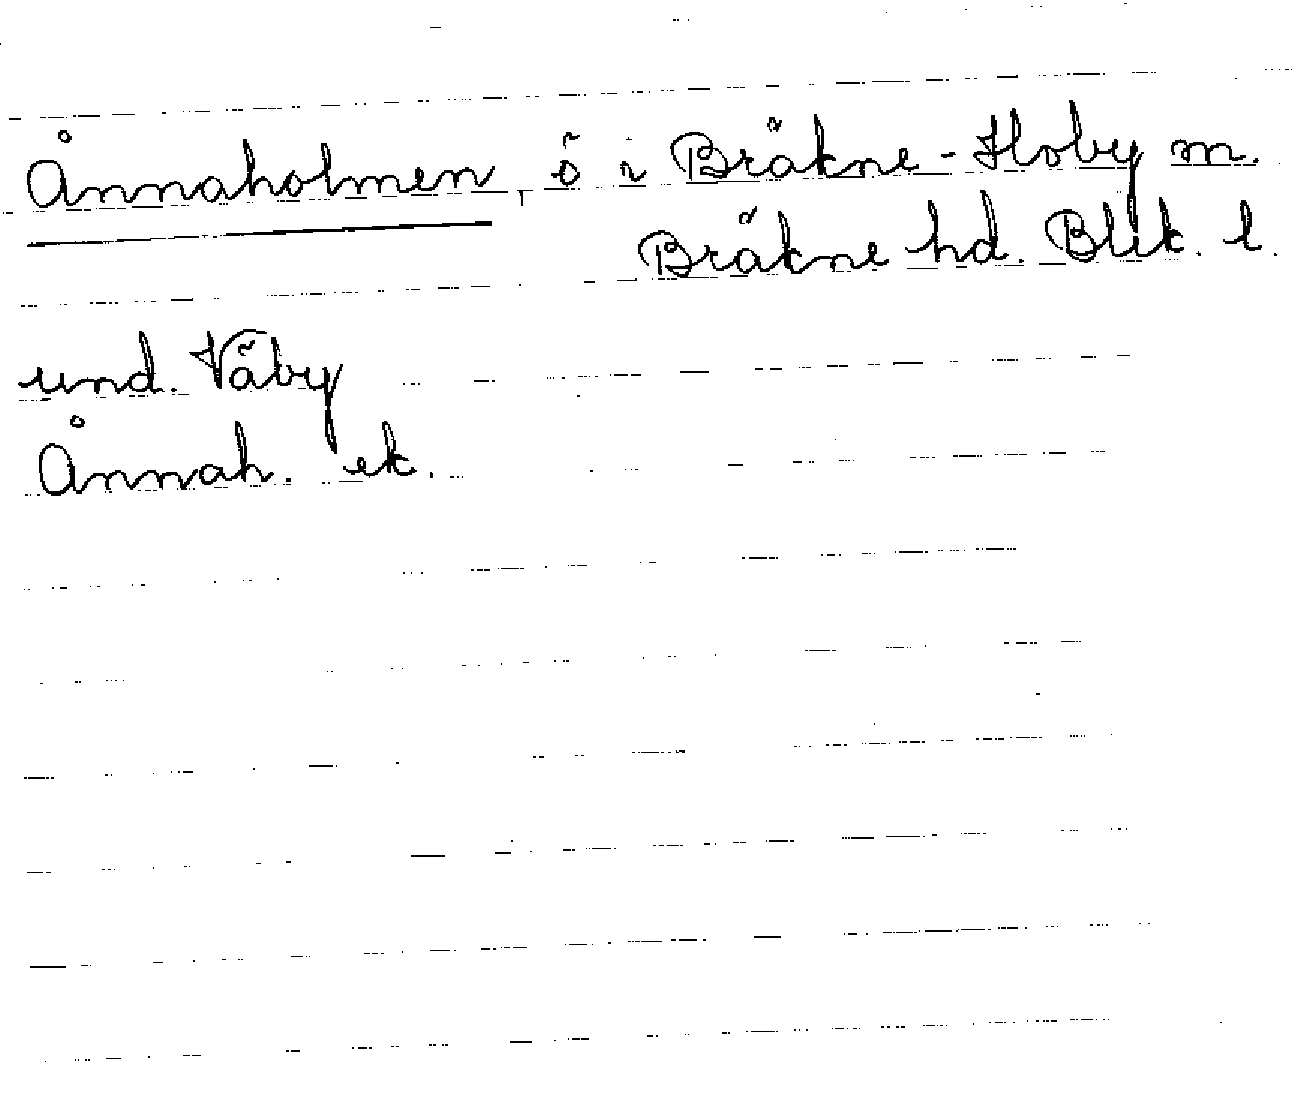 Ånnaholmen, ö i Bräkne-Hoby m.
Bräkne hd. Blek. l.
und. Väby
Ånnah. ek.